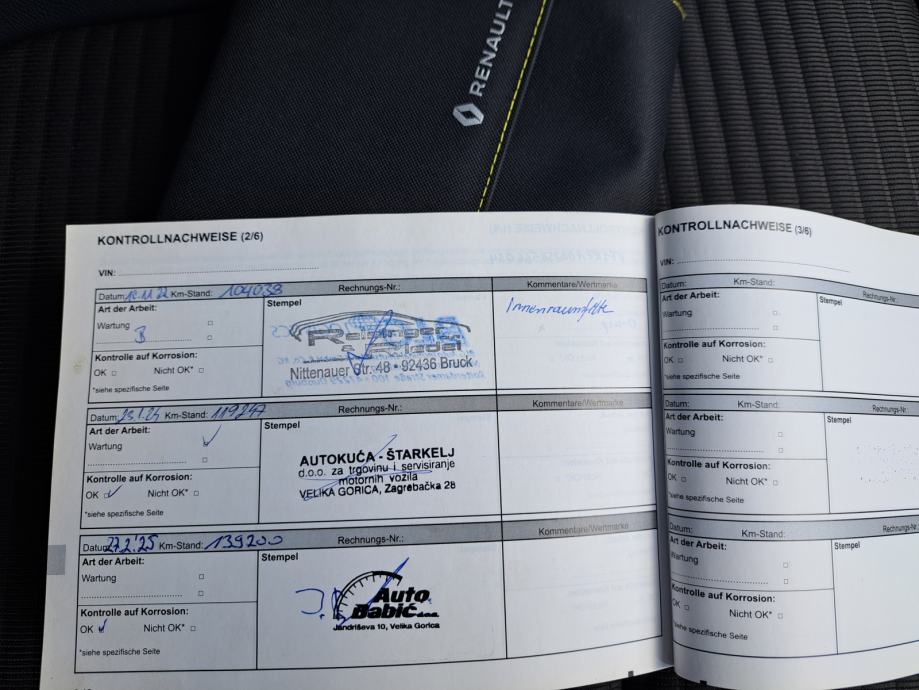 RENAULT
KONTROLLNACHWEISE (2/6)
VIN:
Datum: Km-Stand: 104038 Rechnungs-Nr.: Kommentare/Wertmarke
Art der Arbeit:
Stempel
Wartung
B
Reisinger
& Riedel
Nittenauer Str. 48 • 92436 Bruck
Kontrolle auf Korrosion:
OK Nicht OK*
*siehe spezifische Seite
Datum: Km-Stand: 119247 Rechnungs-Nr.: Kommentare/Wertmarke
Art der Arbeit:
Stempel
Wartung
AUTOKUĆA - ŠTARKELJ
d.o.o. za trgovinu i servisiranje
motornih vozila
VELIKA GORICA, Zagrebačka 28
Kontrolle auf Korrosion:
OK Nicht OK*
*siehe spezifische Seite
27.2.'25 Km-Stand: 139200 Rechnungs-Nr.: Kommentare/Wertmarke
Art der Arbeit:
Stempel
Wartung
Auto
Babić d.o.o.
Jandrićeva 10, Velika Gorica
Kontrolle auf Korrosion:
OK Nicht OK*
*siehe spezifische Seite
KONTROLLNACHWEISE (3/6)
VIN:
Datum: Km-Stand: Rechnungs-Nr.:
Art der Arbeit:
Stempel
Wartung
Kontrolle auf Korrosion:
OK Nicht OK*
*siehe spezifische Seite
Datum: Km-Stand: Rechnungs-Nr.:
Art der Arbeit:
Stempel
Wartung
Kontrolle auf Korrosion:
OK Nicht OK*
*siehe spezifische Seite
Datum: Km-Stand: Rechnungs-Nr.:
Art der Arbeit:
Stempel
Wartung
Kontrolle auf Korrosion:
OK Nicht OK*
*siehe spezifische Seite